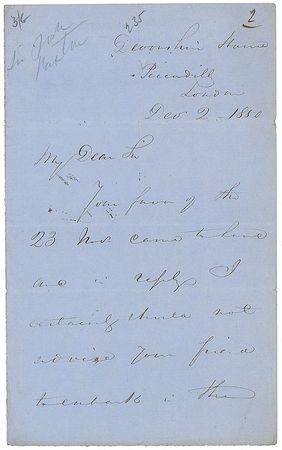 3/6 235 2
Sir Josh
Paxton
Devonshire House
Piccadilly
London
Dec 2 - 1850
My Dear Sir
Your favor of the
23 Nov came to hand
and in reply I
certainly should not
advise your friend
to embark in the